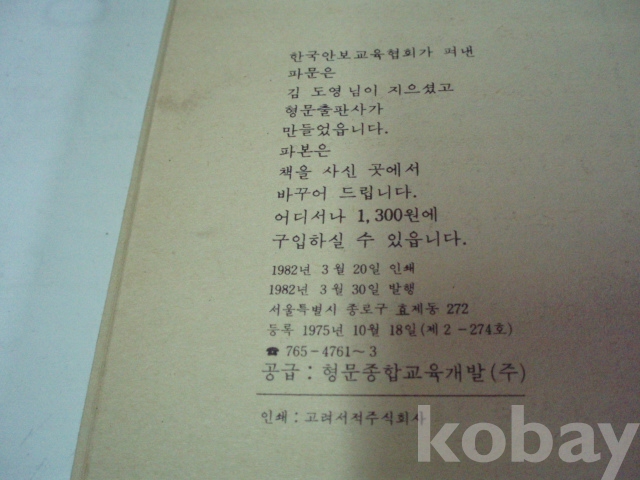 한국안보교육협회가 펴낸
파문은
김 도영님이 지으셨고
형문출판사가
만들었읍니다.
파본은
책을 사신 곳에서
바꾸어 드립니다.
어디서나 1,300원에
구입하실 수 있읍니다.
1982년 3월 20일 인쇄
1982년 3월 30일 발행
서울특별시 종로구 효제동 272
등록 1975년 10월 18일(제2-274호)
☎ 765-4761~3
공급 : 형문종합교육개발(주)
인쇄 : 고려서적주식회사
kobay